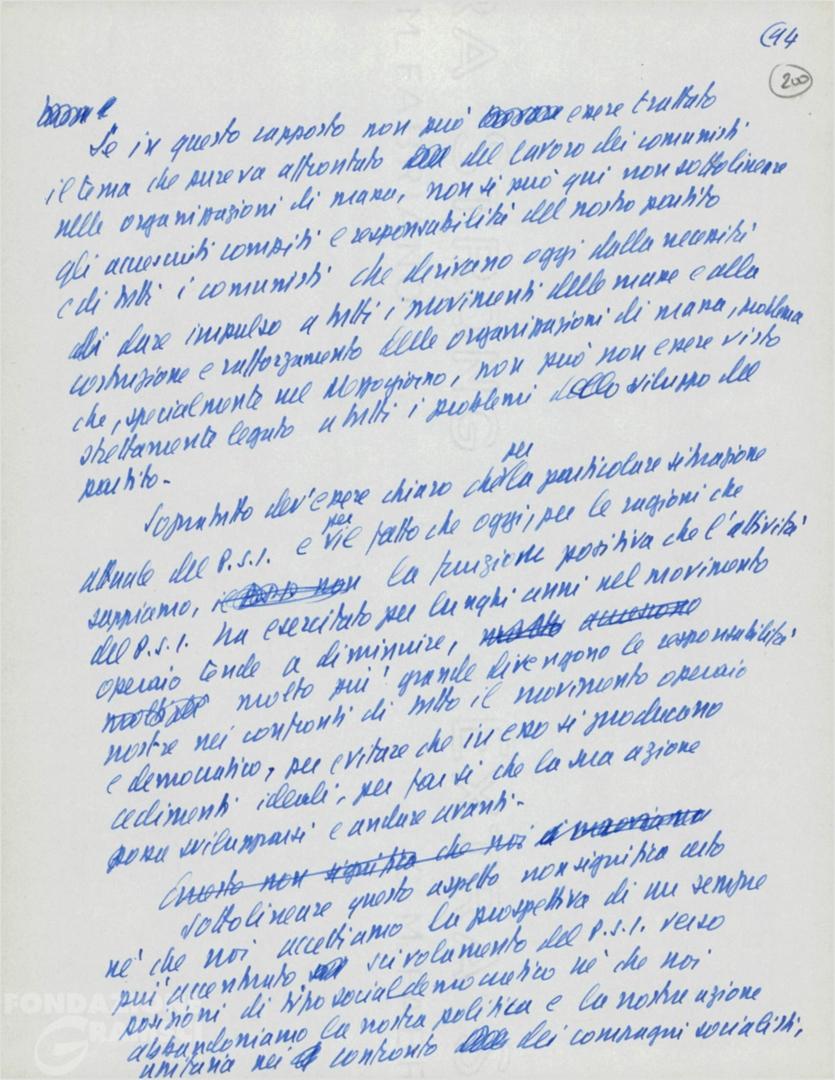 94
200
Se in questo rapporto non può essere trattato
il tema che pure va affrontato del lavoro dei comunisti
nelle organizzazioni di massa, non si può qui non sottolineare
gli accresciuti compiti e responsabilità del nostro partito
e di tutti i comunisti che derivano oggi dalla necessità
di dare impulso a tutti i movimenti delle masse e alla
costruzione e rafforzamento delle organizzazioni di massa, problema
che, specialmente nel Mezzogiorno, non può non essere visto
strettamente legato a tutti i problemi dello sviluppo del
partito.
Sopratutto dev'essere chiaro che per la particolare situazione
attuale del P.S.I. e per il fatto che oggi, per le ragioni che
sappiamo, la funzione positiva che l'attività
del P.S.I. ha esercitato per lunghi anni nel movimento
operaio tende a diminuire, molto accresciute
molto più grande divengono le responsabilità
nostre nei confronti di tutto il movimento operaio
e democratico, per evitare che in esso si producano
cedimenti ideali, per far sì che la sua azione
possa svilupparsi e andare avanti.
Questo non significa che noi
Sottolineare questo aspetto non significa certo
nè che noi accettiamo la prospettiva di un sempre
più accentuato scivolamento del P.S.I. verso
posizioni di tipo socialdemocratico nè che noi
abbandoniamo la nostra politica e la nostra azione
unitaria nei confronto dei compagni socialisti,
FONDAZIONE
GRAMSCI